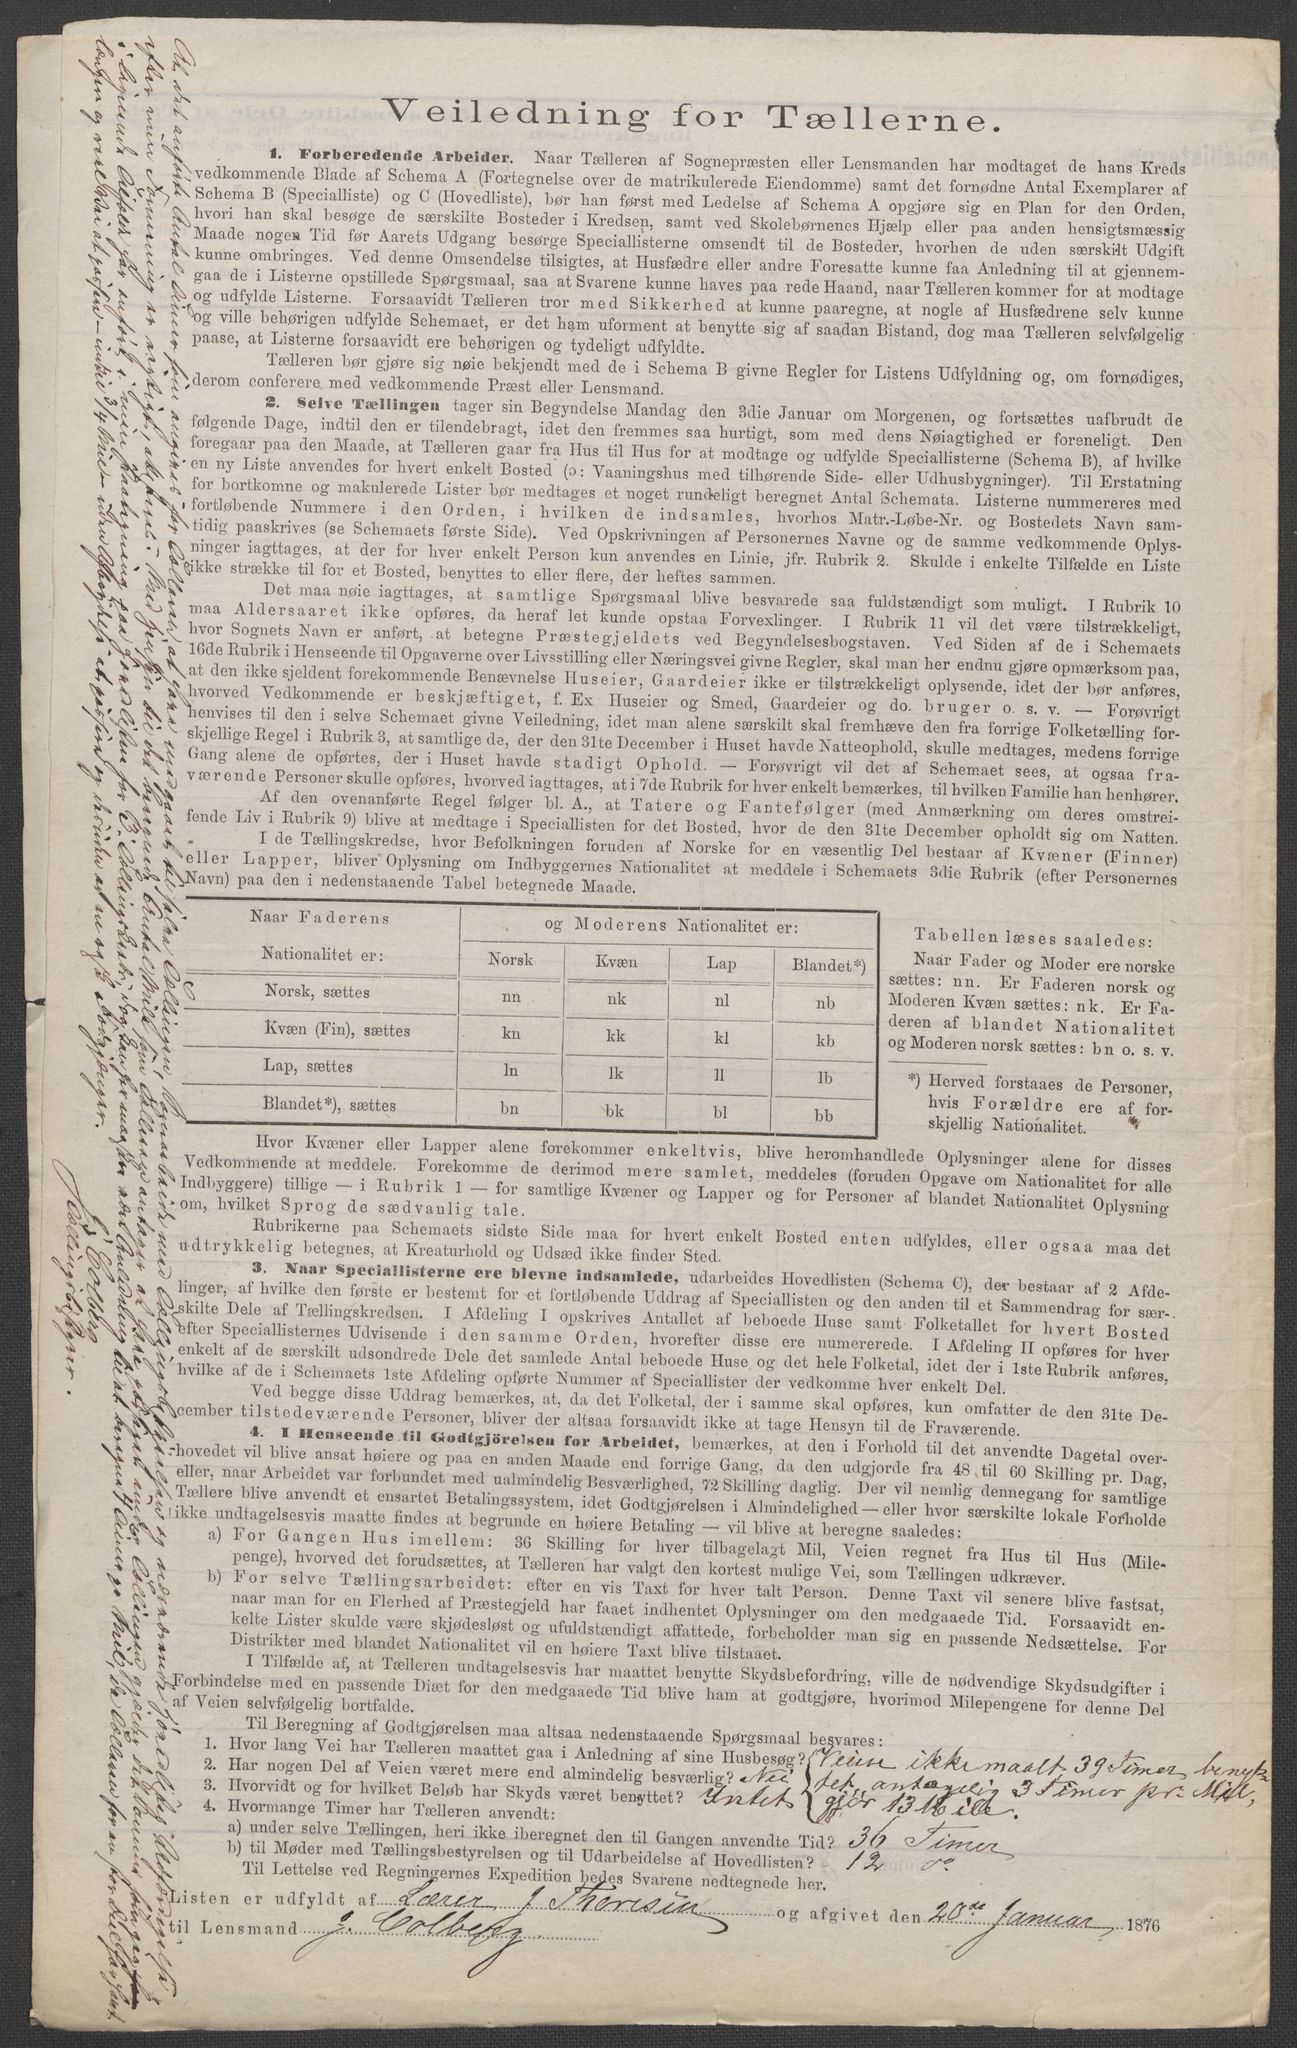 Veiledning for Tællerne.
1. Forberedende Arbeider. Naar Tælleren af Sognepræsten eller Lensmanden har modtaget de hans Kreds
vedkommende Blade af Schema A (Fortegnelse over de matrikulerede Eiendomme) samt det fornødne Antal Exemplarer af
Schema B (Specialliste) og C (Hovedliste), bør han først med Ledelse af Schema A opgjøre sig en Plan for den Orden,
hvori han skal besøge de særskilte Bosteder i Kredsen, samt ved Skolebørnenes Hjælp eller paa anden hensigtsmæssig
Maade nogen Tid før Aarets Udgang besørge Speciallisterne omsendt til de Bosteder, hvorhen de uden særskilt Udgift
kunne ombringes. Ved denne Omsendelse tilsigtes, at Husfædre eller andre Foresatte kunne faa Anledning til at gjennem-
gaa de i Listerne opstillede Spørgsmaal, saa at Svarene kunne haves paa rede Haand, naar Tælleren kommer for at modtage
og udfylde Listerne. Forsaavidt Tælleren tror med Sikkerhed at kunne paaregne, at nogle af Husfædrene selv kunne
og ville behørigen udfylde Schemaet, er det ham uforment at benytte sig af saadan Bistand, dog maa Tælleren selvfølgelig
paase, at Listerne forsaavidt ere behørigen og tydeligt udfyldte.
Tælleren bør gjøre sig nøie bekjendt med de i Schema B givne Regler for Listens Udfyldning og, om fornødiges,
derom conferere med vedkommende Præst eller Lensmand.
2. Selve Tællingen tager sin Begyndelse Mandag den 3die Januar om Morgenen, og fortsættes uafbrudt de
følgende Dage, indtil den er tilendebragt, idet den fremmes saa hurtigt, som med dens Nøiagtighed er foreneligt. Den
foregaar paa den Maade, at Tælleren gaar fra Hus til Hus for at modtage og udfylde Speciallisterne (Schema B), af hvilke
en ny Liste anvendes for hvert enkelt Bosted (ɔ: Vaaningshus med tilhørende Side- eller Udhusbygninger). Til Erstatning
for bortkomne og makulerede Lister bør medtages et noget rundeligt beregnet Antal Schemata. Listerne nummereres med
fortløbende Nummere i den Orden, i hvilken de indsamles, hvorhos Matr.-Løbe-Nr. og Bostedets Navn sam-
tidig paaskrives (se Schemaets første Side). Ved Opskrivningen af Personernes Navne og de samme vedkommende Oplys-
ninger iagttages, at der for hver enkelt Person kun anvendes en Linie, jfr. Rubrik 2. Skulde i enkelte Tilfælde en Liste
ikke strække til for et Bosted, benyttes to eller flere, der heftes sammen.
Det maa nøie iagttages, at samtlige Spørgsmaal blive besvarede saa fuldstændigt som muligt. I Rubrik 10
maa Aldersaaret ikke opføres, da heraf let kunde opstaa Forvexlinger. I Rubrik 11 vil det være tilstrækkeligt,
hvor Sognets Navn er anført, at betegne Præstegjeldets ved Begyndelsesbogstaven. Ved Siden af de i Schemaets
16de Rubrik i Henseende til Opgaverne over Livsstilling eller Næringsvei givne Regler, skal man her endnu gjøre opmærksom paa,
at den ikke sjeldent forekommende Benævnelse Huseier, Gaardeier ikke er tilstrækkeligt oplysende, idet der bør anføres,
hvorved Vedkommende er beskjæftiget, f. Ex Huseier og Smed, Gaardeier og do. bruger o. s. v. — Forøvrigt
henvises til den i selve Schemaet givne Veiledning, idet man alene særskilt skal fremhæve den fra forrige Folketælling for-
skjellige Regel i Rubrik 3, at samtlige de, der den 31te December i Huset havde Natteophold, skulle medtages, medens forrige
Gang alene de opførtes, der i Huset havde stadigt Ophold. — Forøvrigt vil det af Schemaet sees, at ogsaa fra-
værende Personer skulle opføres, hvorved iagttages, at i 7de Rubrik for hver enkelt bemærkes, til hvilken Familie han henhører.
Af den ovenanførte Regel følger bl. A., at Tatere og Fantefølger (med Anmærkning om deres omstrei-
fende Liv i Rubrik 9) blive at medtage i Speciallisten for det Bosted, hvor de den 31te December opholdt sig om Natten.
I de Tællingskredse, hvor Befolkningen foruden af Norske for en væsentlig Del bestaar af Kvæner (Finner)
eller Lapper, bliver Oplysning om Indbyggernes Nationalitet at meddele i Schemaets 3die Rubrik (efter Personernes
Navn) paa den i nedenstaaende Tabel betegnede Maade.
Naar Faderens
Nationalitet er:
og Moderens Nationalitet er:
Norsk Kvæn Lap Blandet*)
Norsk, sættes nn nk nl nb
Kvæn (Fin), sættes kn kk kl kb
Lap, sættes ln lk ll lb
Blandet*), sættes bn bk bl bb
Tabellen læses saaledes:
Naar Fader og Moder ere norske
sættes: nn. Er Faderen norsk og
Moderen Kvæn sættes: nk. Er Fa-
deren af blandet Nationalitet
og Moderen norsk sættes: bn o. s. v.
*) Herved forstaaes de Personer,
hvis Forældre ere af for-
skjellig Nationalitet.
Hvor Kvæner eller Lapper alene forekommer enkeltvis, blive heromhandlede Oplysninger alene for disses
Vedkommende at meddele. Forekomme de derimod mere samlet, meddeles (foruden Opgave om Nationalitet for alle
Indbyggere) tillige — i Rubrik 1 — for samtlige Kvæner og Lapper og for Personer af blandet Nationalitet Oplysning
om, hvilket Sprog de sædvanlig tale.
Rubrikerne paa Schemaets sidste Side maa for hvert enkelt Bosted enten udfyldes, eller ogsaa maa det
udtrykkelig betegnes, at Kreaturhold og Udsæd ikke finder Sted.
3. Naar Speciallisterne ere blevne indsamlede, udarbeides Hovedlisten (Schema C), der bestaar af 2 Afde-
linger, af hvilke den første er bestemt for et fortløbende Uddrag af Speciallisten og den anden til et Sammendrag for sær-
skilte Dele af Tællingskredsen. I Afdeling I opskrives Antallet af beboede Huse samt Folketallet for hvert Bosted
efter Speciallisternes Udvisende i den samme Orden, hvorefter disse ere numererede. I Afdeling II opføres for hver
enkelt af de særskilt udsondrede Dele det samlede Antal beboede Huse og det hele Folketal, idet der i 1ste Rubrik anføres,
hvilke af de i Schemaets 1ste Afdeling opførte Nummer af Speciallister der vedkomme hver enkelt Del.
Ved begge disse Uddrag bemærkes, at, da det Folketal, der i samme skal opføres, kun omfatter de den 31te De-
cember tilstedeværende Personer, bliver der altsaa forsaavidt ikke at tage Hensyn til de Fraværende.
4. I Henseende til Godtgjörelsen for Arbeidet, bemærkes, at den i Forhold til det anvendte Dagetal over-
hovedet vil blive ansat høiere og paa en anden Maade end forrige Gang, da den udgjorde fra 48 til 60 Skilling pr. Dag,
eller, naar Arbeidet var forbundet med ualmindelig Besværlighed, 72 Skilling daglig. Der vil nemlig dennegang for samtlige
Tællere blive anvendt et ensartet Betalingssystem, idet Godtgjørelsen i Almindelighed — eller hvor særskilte lokale Forholde
ikke undtagelsesvis maatte findes at begrunde en høiere Betaling — vil blive at beregne saaledes:
a) For Gangen Hus imellem: 36 Skilling for hver tilbagelagt Mil, Veien regnet fra Hus til Hus (Mile-
penge), hvorved det forudsættes, at Tælleren har valgt den kortest mulige Vei, som Tællingen udkræver.
b) For selve Tællingsarbeidet: efter en vis Taxt for hver talt Person. Denne Taxt vil senere blive fastsat,
naar man for en Flerhed af Præstegjeld har faaet indhentet Oplysninger om den medgaaede Tid. Forsaavidt en-
kelte Lister skulde være skjødesløst og ufuldstændigt affattede, forbeholder man sig en passende Nedsættelse. For
Distrikter med blandet Nationalitet vil en høiere Taxt blive tilstaaet.
I Tilfælde af, at Tælleren undtagelsesvis har maattet benytte Skydsbefordring, ville de nødvendige Skydsudgifter i
Forbindelse med en passende Diæt for den medgaaede Tid blive ham at godtgjøre, hvorimod Milepengene for denne Del
af Veien selvfølgelig bortfalde.
Til Beregning af Godtgjørelsen maa altsaa nedenstaaende Spørgsmaal besvares:
1. Hvor lang Vei har Tælleren maattet gaa i Anledning af sine Husbesøg? Veien ikke maalt, 39 Timer benyt-
tet, antagelig 3 Timer pr. Mil,
gjør 13 Mile.
2. Har nogen Del af Veien været mere end almindelig besværlig? Nei
3. Hvorvidt og for hvilket Beløb har Skyds været benyttet? Intet
4. Hvormange Timer har Tælleren anvendt:
a) under selve Tællingen, heri ikke iberegnet den til Gangen anvendte Tid? 36 Timer
b) til Møder med Tællingsbestyrelsen og til Udarbeidelse af Hovedlisten? 12 do
Til Lettelse ved Regningernes Expedition bedes Svarene nedtegnede her.
Listen er udfyldt af Lærer J Thoresen og afgivet den 20de Januar 1876
til Lensmand J. Colberg
J. Colberg
Tællingsbestyrer.